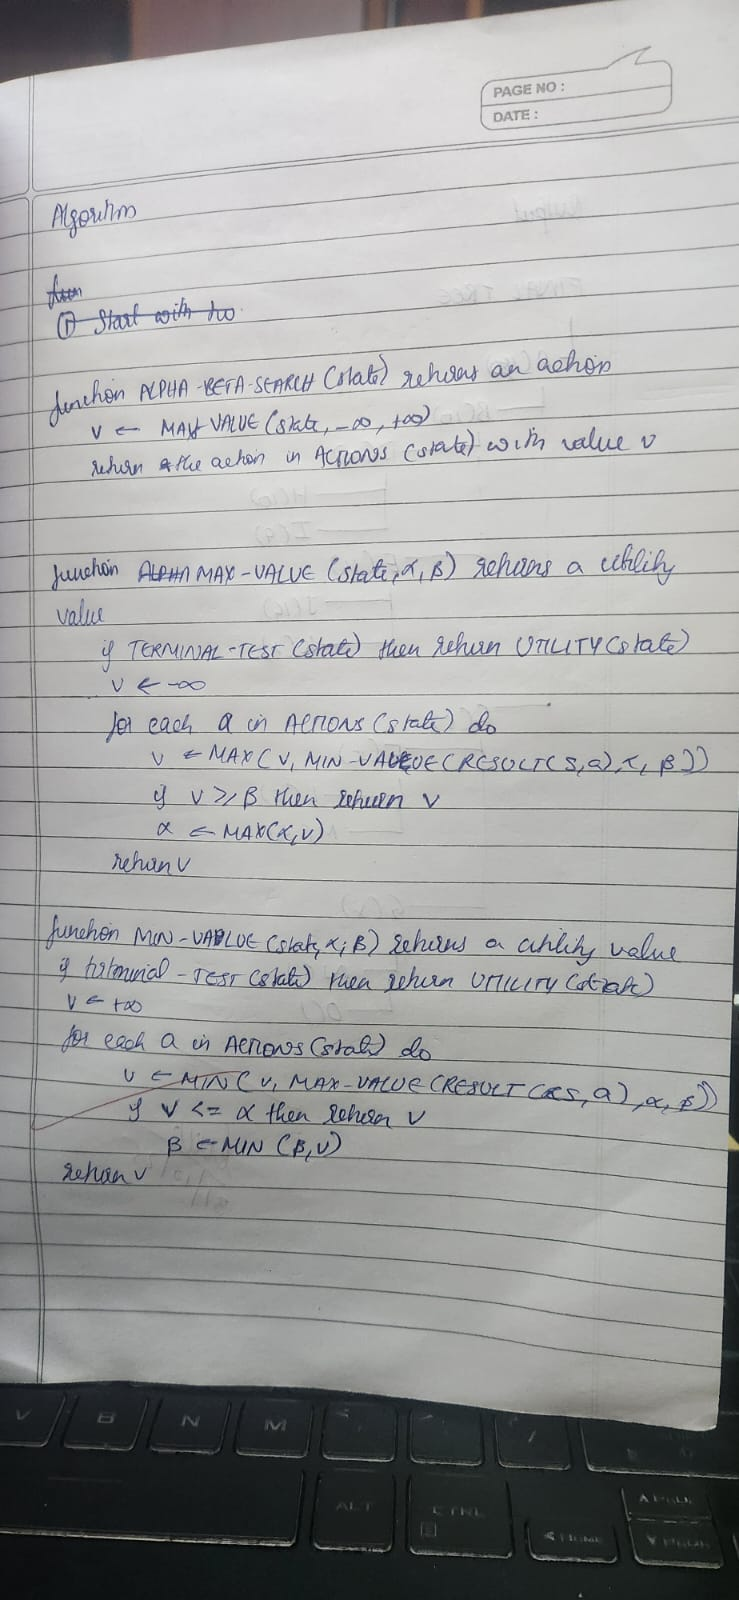 PAGE NO :
DATE :
Algorithm
① Start with two
function ALPHA-BETA-SEARCH (state) returns an action
v ← MAX-VALUE (state, -∞, +∞)
return the action in ACTIONS (state) with value v
function ALPHA MAX-VALUE (state, α, β) returns a utility
value
if TERMINAL-TEST (state) then return UTILITY (state)
v ← -∞
for each a in ACTIONS (state) do
v ← MAX (v, MIN-VALUE (RESULT (s, a), α, β))
if v ⩾ β then return v
α ← MAX (α, v)
return v
function MIN-VALUE (state, α, β) returns a utility value
if -TEST (state) then return UTILITY (state)
v ← +∞
for each a in ACTIONS (state) do
v ← MIN (v, MAX-VALUE (RESULT (s, a), α, β))
if v <= α then return v
β ← MIN (β, v)
return v
V B N M
ALT CTRL
HOME